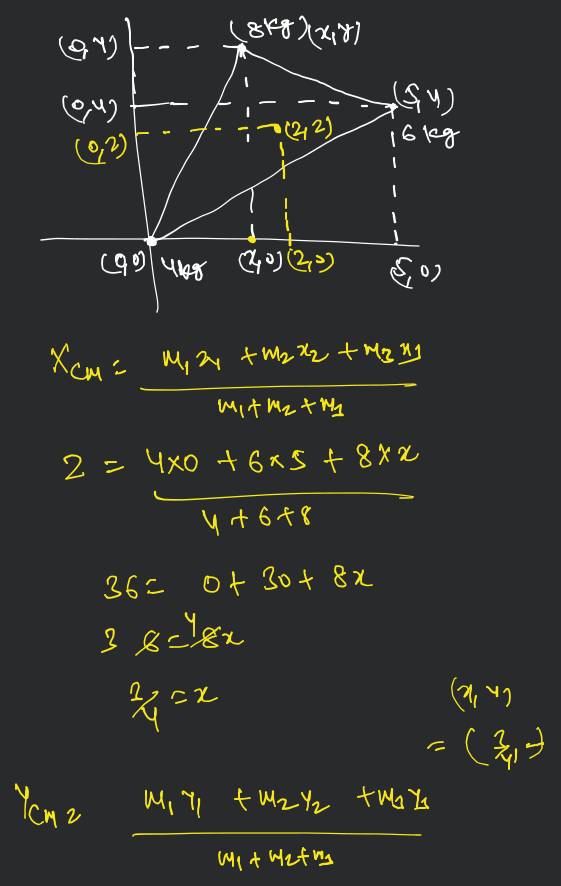 (0,y) (8kg)(x,y)
(0,4) (5,4)
(0,2) (2,2) 6kg
(0,0) 4kg (x,0) (2,0) (5,0)
X_CM = m₁x₁ + m₂x₂ + m₃x₃
m₁+m₂+m₃
2 = 4×0 + 6×5 + 8×x
4+6+8
36 = 0 + 30 + 8x
3 6 = 4 8x
3/4 = x
(x, y)
= (3/4, -)
Y_CM = m₁y₁ + m₂y₂ + m₃y₃
m₁+m₂+m₃